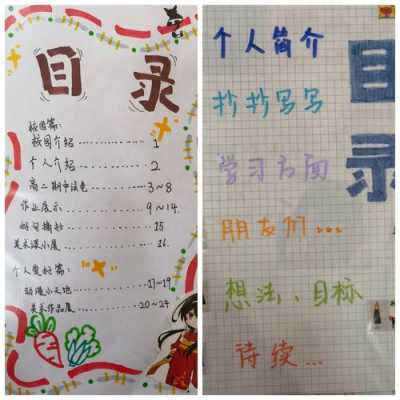 目录
校园篇:
校园介绍 ............ 1
个人介绍 ............ 2
高二期中试卷 ........ 3~8
作业展示 ............ 9~14
好句摘抄 ............ 15
美术课小展 .......... 16
个人爱好篇:
动漫小天地 ........ 17~19
美术作品展 ........ 20~24
目录
个人简介
抄抄写写
学习方面
朋友们...
想法、目标
待续...